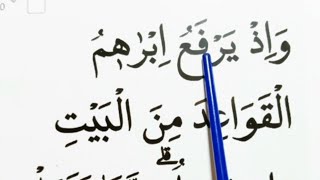 وَاِذْ يَرْفَعُ اِبْرٰهٖمُ
الْقَوَاعِدَ مِنَ الْبَيْتِ